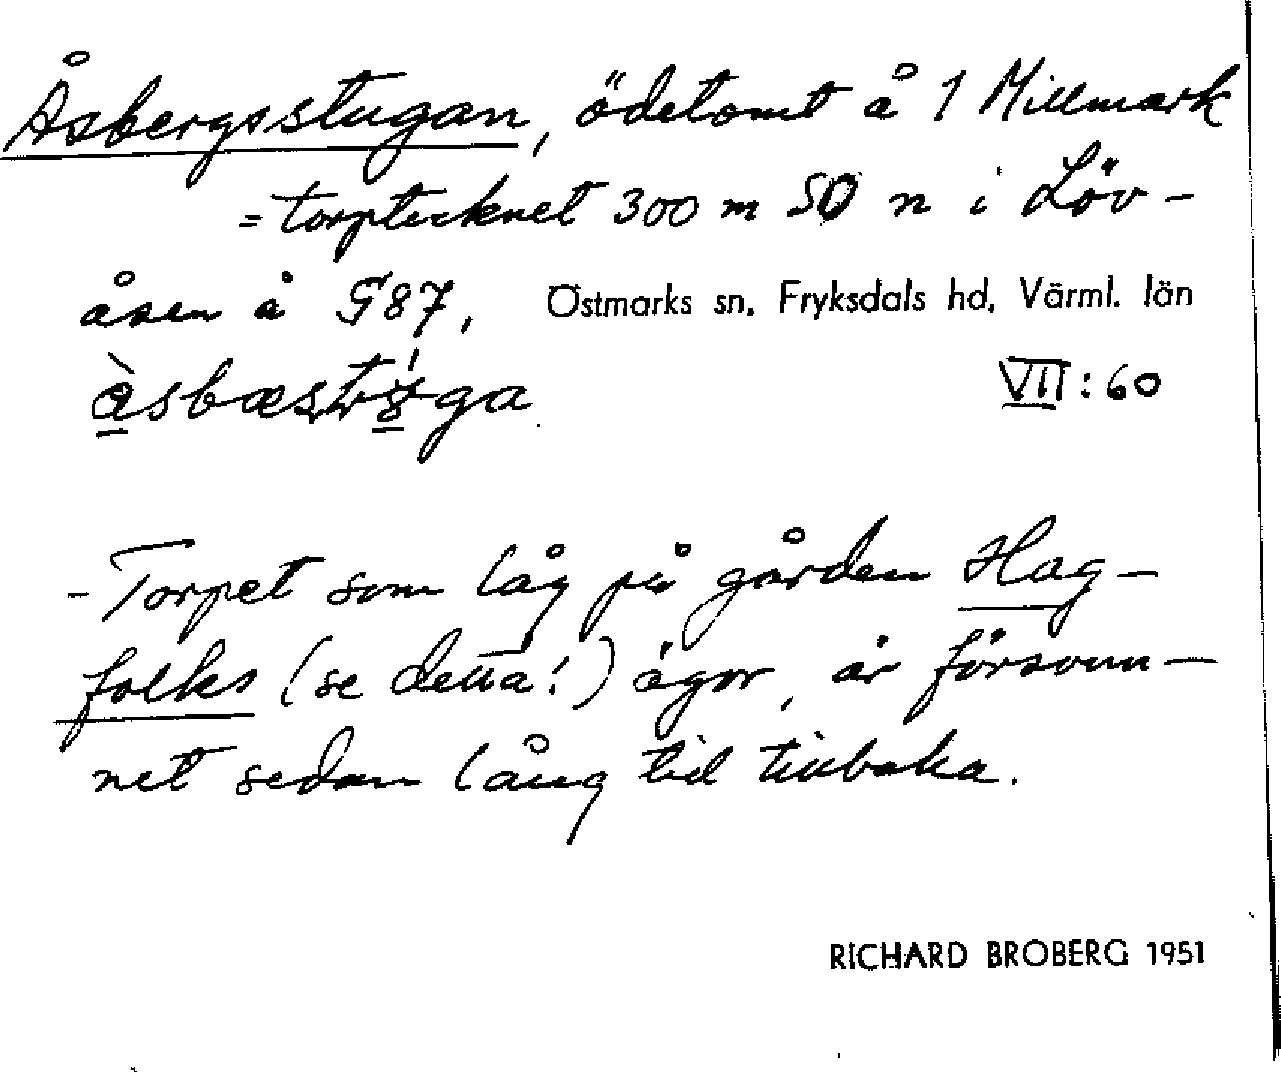 Åsbergsstugan, ödetomt å 1 Millmark
= torptecknet 300 m SO n i Löv-
åsen å G87, Östmarks sn. Fryksdals hd. Värml. län
VII:60
- Torpet som låg på gården Hag-
folks (se detta!) ägor, är försvun-
net sedan lång tid tillbaka.
RICHARD BROBERG 1951